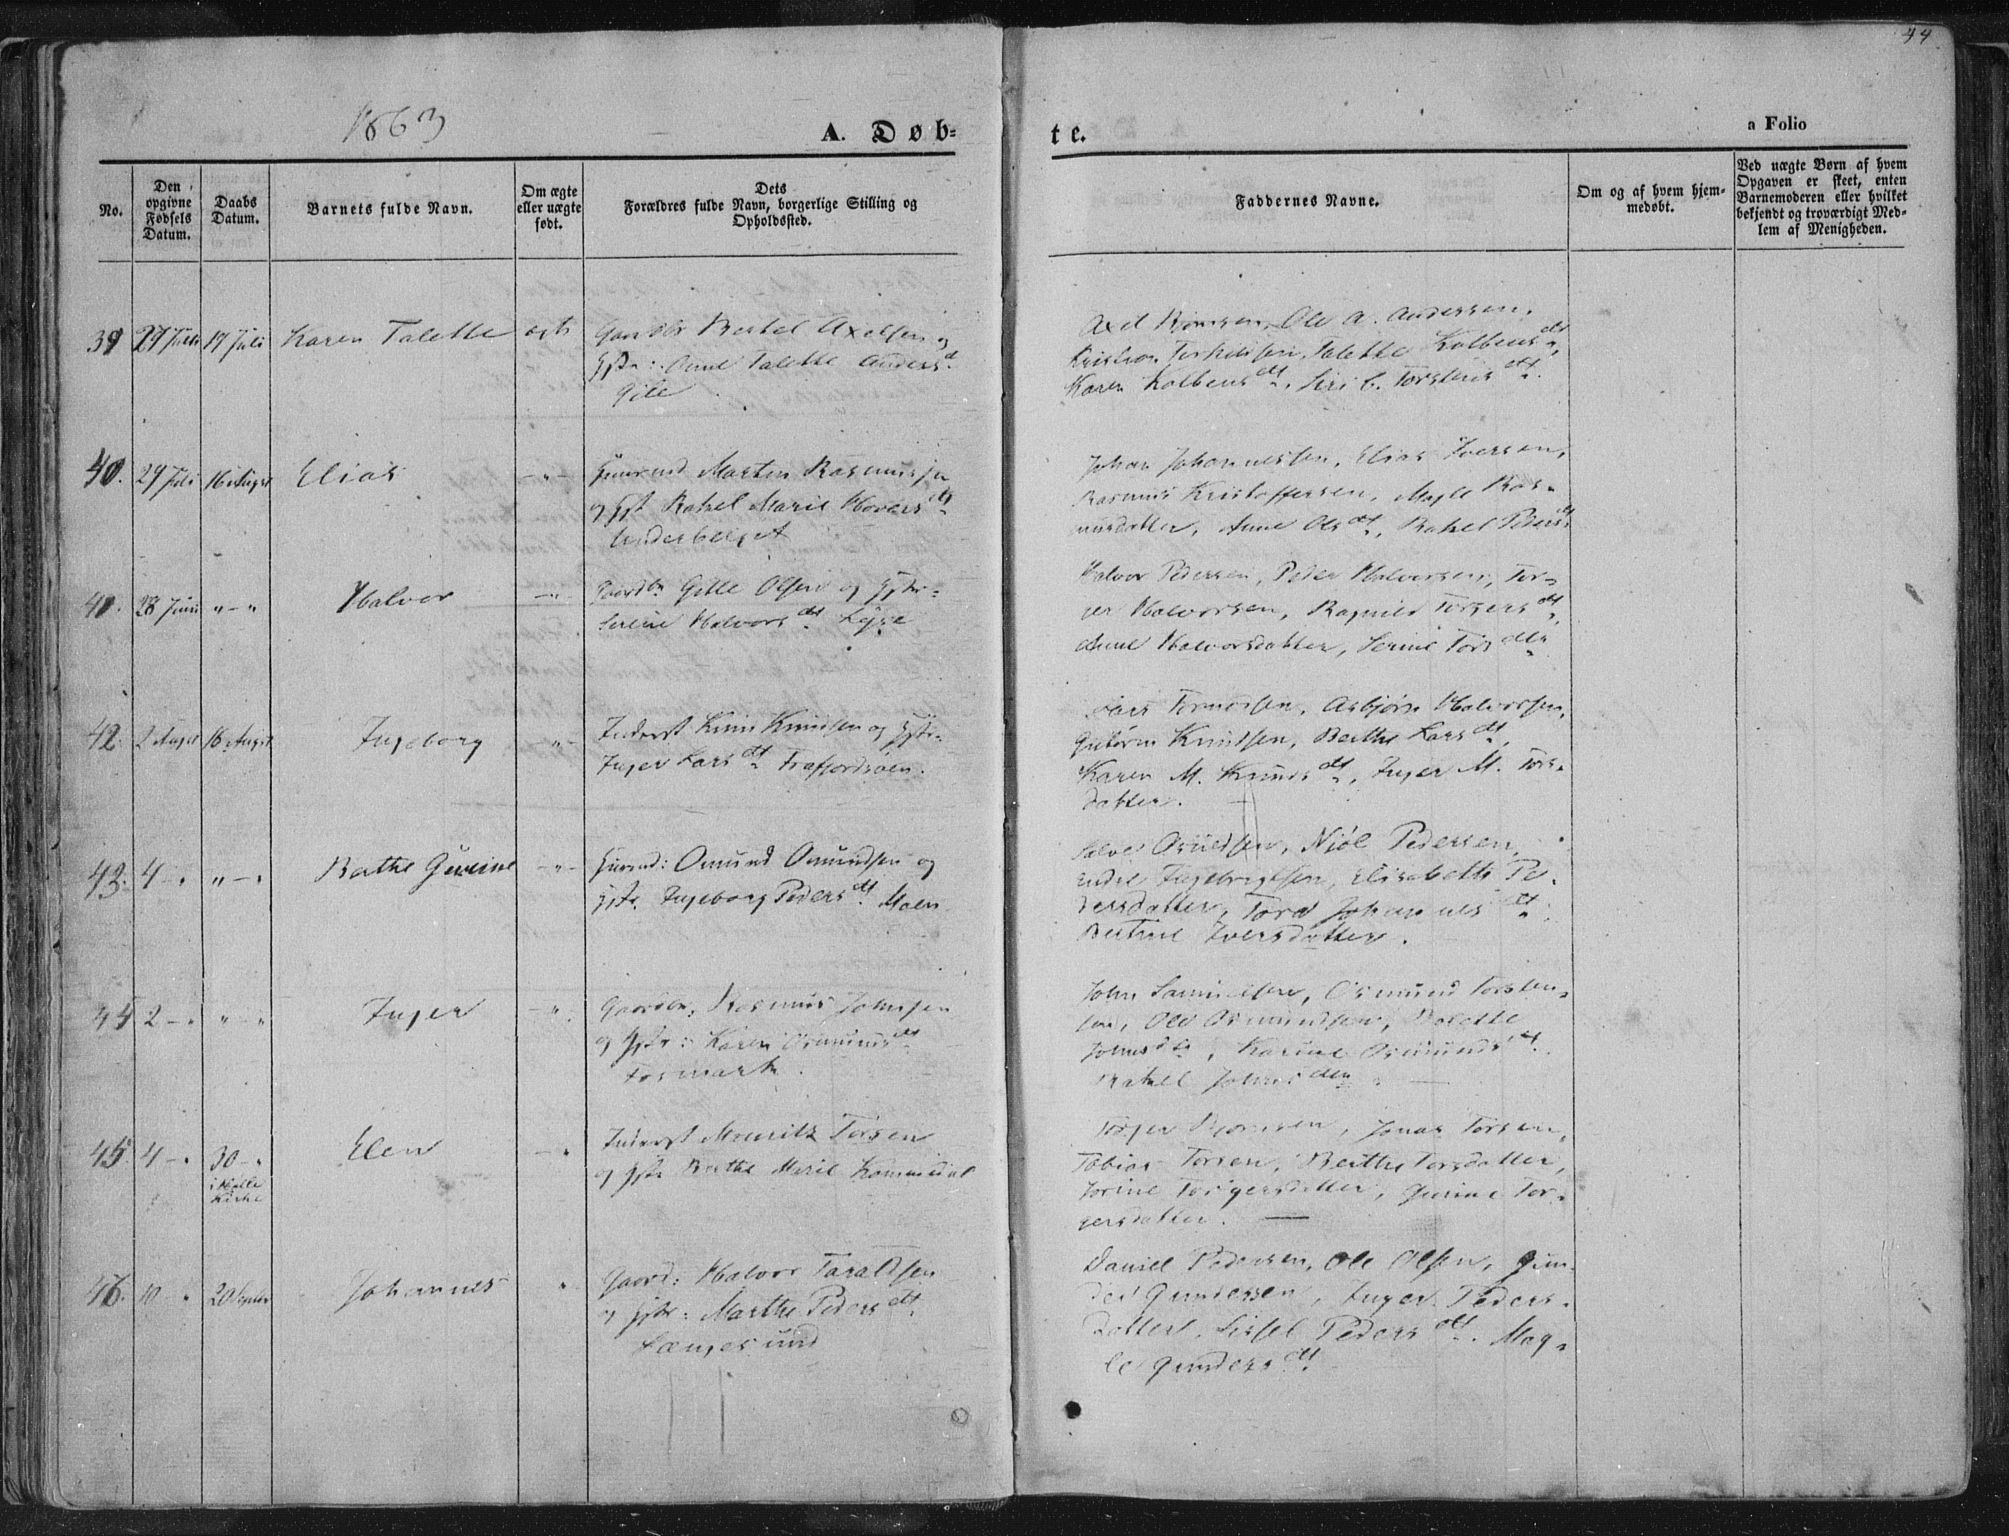 44
1863
A. Døb-
te.
a Folio
No.
Den opgivne Fødsels Datum.
Daabs Datum.
Barnets fulde Navn.
Om ægte eller uægte født.
Dets Forældres fulde Navn, borgerlige Stilling og Opholdssted.
Faddernes Navne.
Om og af hvem hjemmedøbt.
Ved uægte Børn af hvem Opgaven er skeet, enten Barnemoderen eller hvilket bekjendt og troværdigt Medlem af Menigheden.
39 19 Juli Karen Talette ægte Bertel Axelsen og
Hstr: Anne Talette Anders d.
Gile
Axel Ole A. Andersen,
Talette Kolbens dt,
Karen Kolbens dt, Siri C. Torstens dt.
40. 24 Juli 16 August Elias -"- Huusmd Morten Rasmussen
og Hst Rakel Marie Hovers dt
Underberget
Johan Johannessen, Elias Iversen,
Rasmus Kristoffersen, Magle Ras-
musdatter, Anne Ols dt, Rakel Peders dt
41. 28 Juni "-" Halvor -"- Gaardbr Gitle Olsen og Hstr:
Serine Halvors dt Lyse
Halvor Pedersen, Peder Halvorsen, Tor-
ger Halvorsen, Ragnild Torgers dt,
Anne Halvorsdatter, Serine Tors dtr
42. 2 August 16 August Ingeborg "- Inderst Knud Knudsen og Hstr:
Inger Lars dt Frafjordøen.
Lars Asbjørn Halvorsen,
Guttorm Knudsen, Berthe Lars dt,
Karen M. Knuds dt, Inger M. Tors-
datter.
43. 4 -" "-" Berthe Gurine -"- Huusmd: Omund Omundsen og
Hstr. Ingeborg Peders dt. Moen
Njøl Pedersen,
Endre Ingebrigtsen, Elisabeth Pe-
dersdatter, Tora Johannes dt.
Bertine Iversdatter.
44 2 -" "-" Inger -"- Gaardbr. Rasmus Johnsen
og Hstr: Karen Osmunds dt
Fosmark.
John Samuelsen, Osmund Torsten-
sen, Ole Osmundsen, Borette
Johnsdtr, Karine Osmunds dt
Rakel Johns dtr
45. 4 -" 30 -" Elen -" Inderst Mouritz Torsen
i Helle
Kirke
og Hstr Berthe Marie Kommedal
Torger Bjørnsen, Jonas Torsen,
Tobias Torsen, Berthe Torsdatter,
Jorine Torgersdatter, Gurine Tor-
gersdatter.
46. 10 " 20 Septbr Johannes " Gaard: Halvor Taraldsen
og Hstr: Marthe Peders dt.
Longesund
Daniel Pedersen, Ole Olsen, Gun-
der Gundersen, Inger Peders-
datter, Sissel Peders dt. Mag-
le Gunders dt